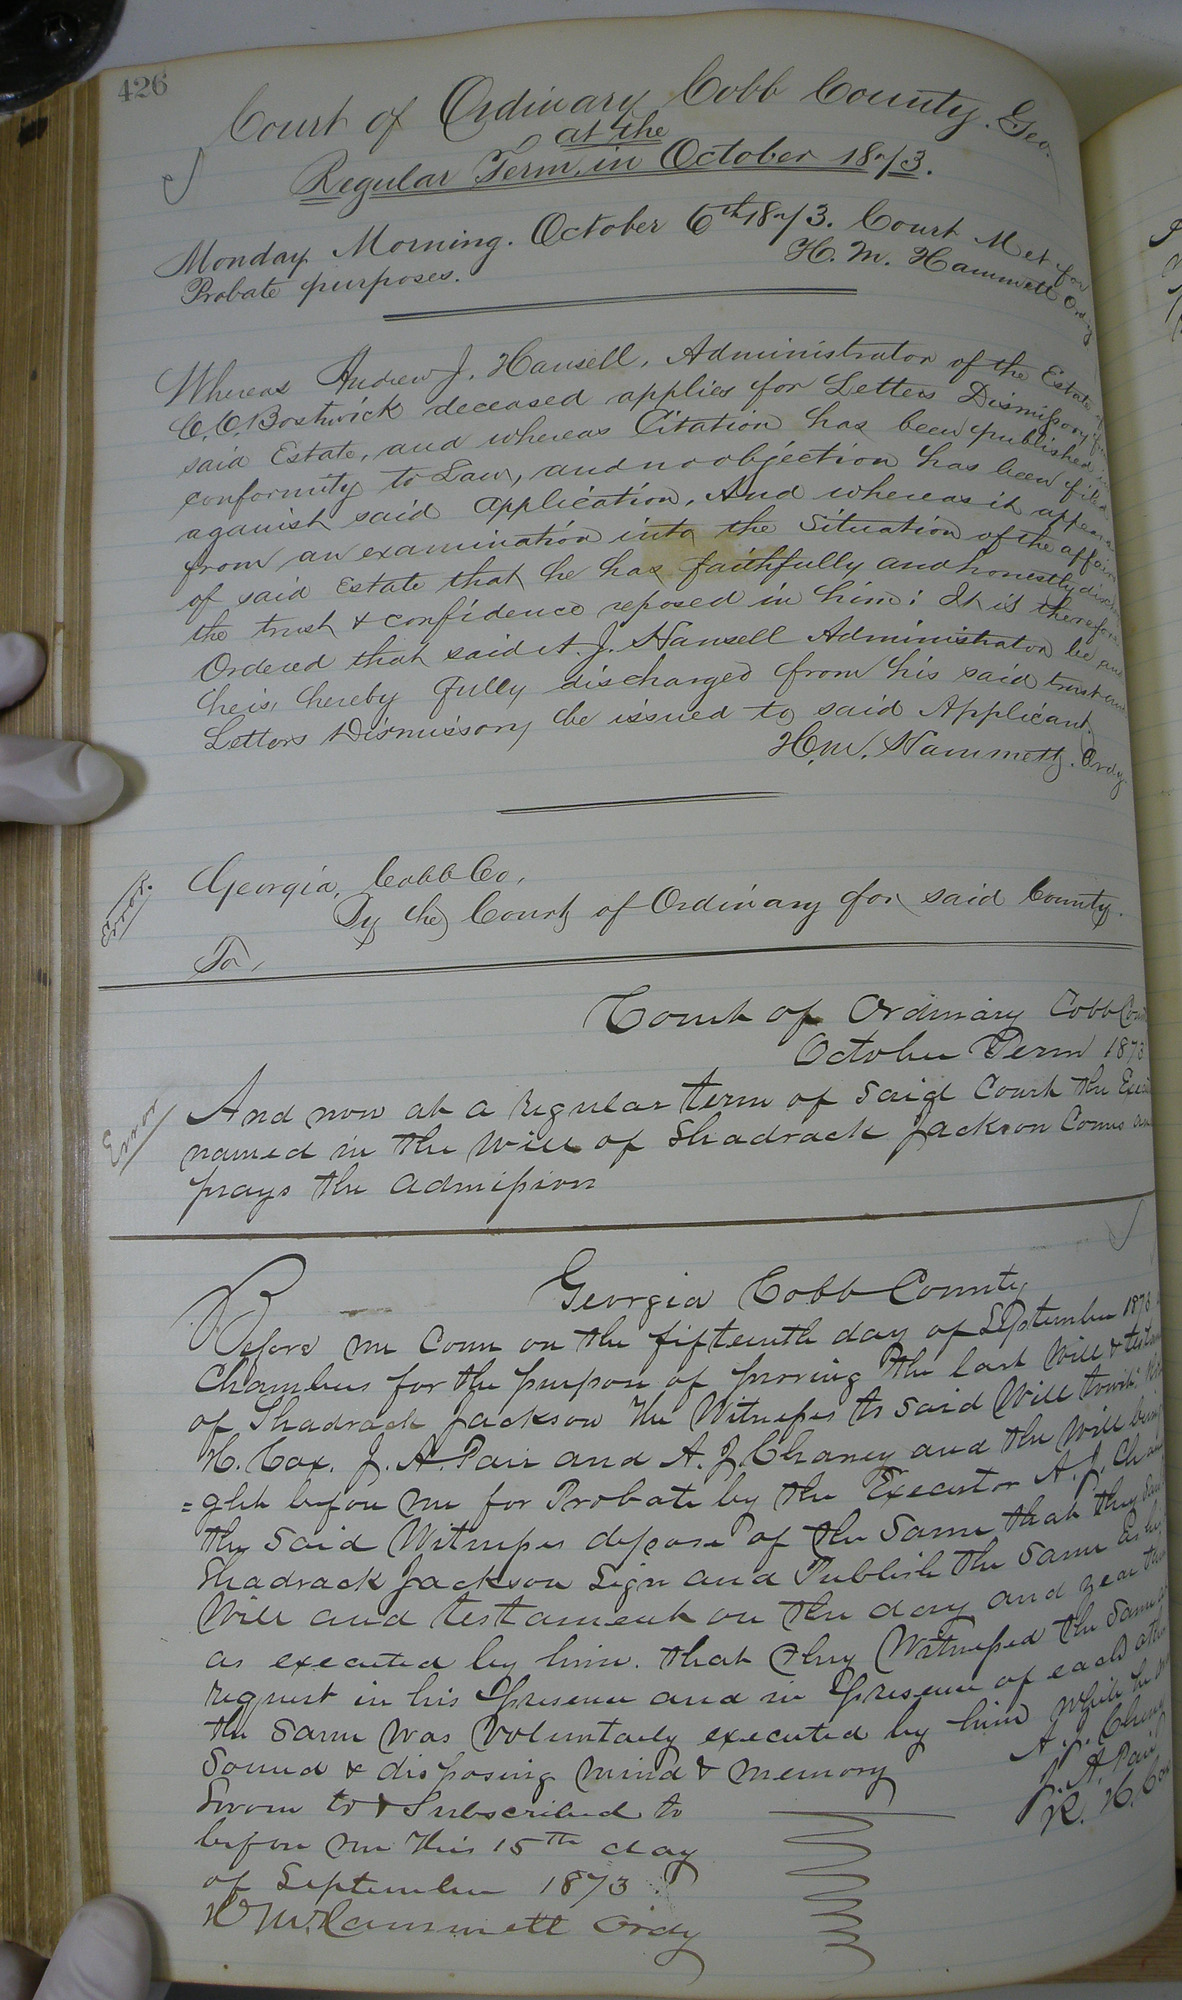 426
Court of Ordinary Cobb County. Geo.
at the
Regular Term, in October 1873.
Monday Morning. October 6th 1873. Court Met for
Probate purposes.
H. M. Hammett Ordy
Whereas Andrew J. Hansell, Administrator of the Estate of
C. C. Bostwick deceased applies for Letters Dismissory from
said Estate, and whereas Citation has been published in
conformity to Law, and no objection has been filed
against said application, And whereas it appears
from an examination into the Situation of the affairs
of said Estate that he has faithfully and honestly
the trust & confidence reposed in him: It is therefore
Ordered that said A. J. Hansell Administrator be and
he is, hereby fully discharged from his said trust and
Letters Dismissory be issued to said Applicant.
H. M. Hammett. Ordy.
Error.
Georgia, Cobb Co,
By the Court of Ordinary for said County.
To,
Court of Ordinary Cobb
October Term 1873
Error
And now at a regular term of said Court the
named in the Will of Shadrack Jackson Comes and
prays the admission
Georgia Cobb County
Before me Come on the fifteenth day of September 1873
Chambers for the purpose of proving the last Will &
of Shadrack Jackson the Witnesses to said Will towit:
H. Cox. J. A. Pair and A. J. Chaney and the Will being
=ght before me for Probate by the Executor A. J.
the said Witnesses depose of the same that they saw
Shadrack Jackson Sign and Publish the same as his
Will and testament on the day and year
as executed by him. that they Witnessed the same
request in his presence and in presence of each other
the same was Voluntarly executed by him while he
Sound & disposing mind & memory
A. J. Chaney
J. A. Pair
R. H. Cox
Sworn to & Subscribed to
before me this 15th day
of September 1873
H M. Hammett Ordy